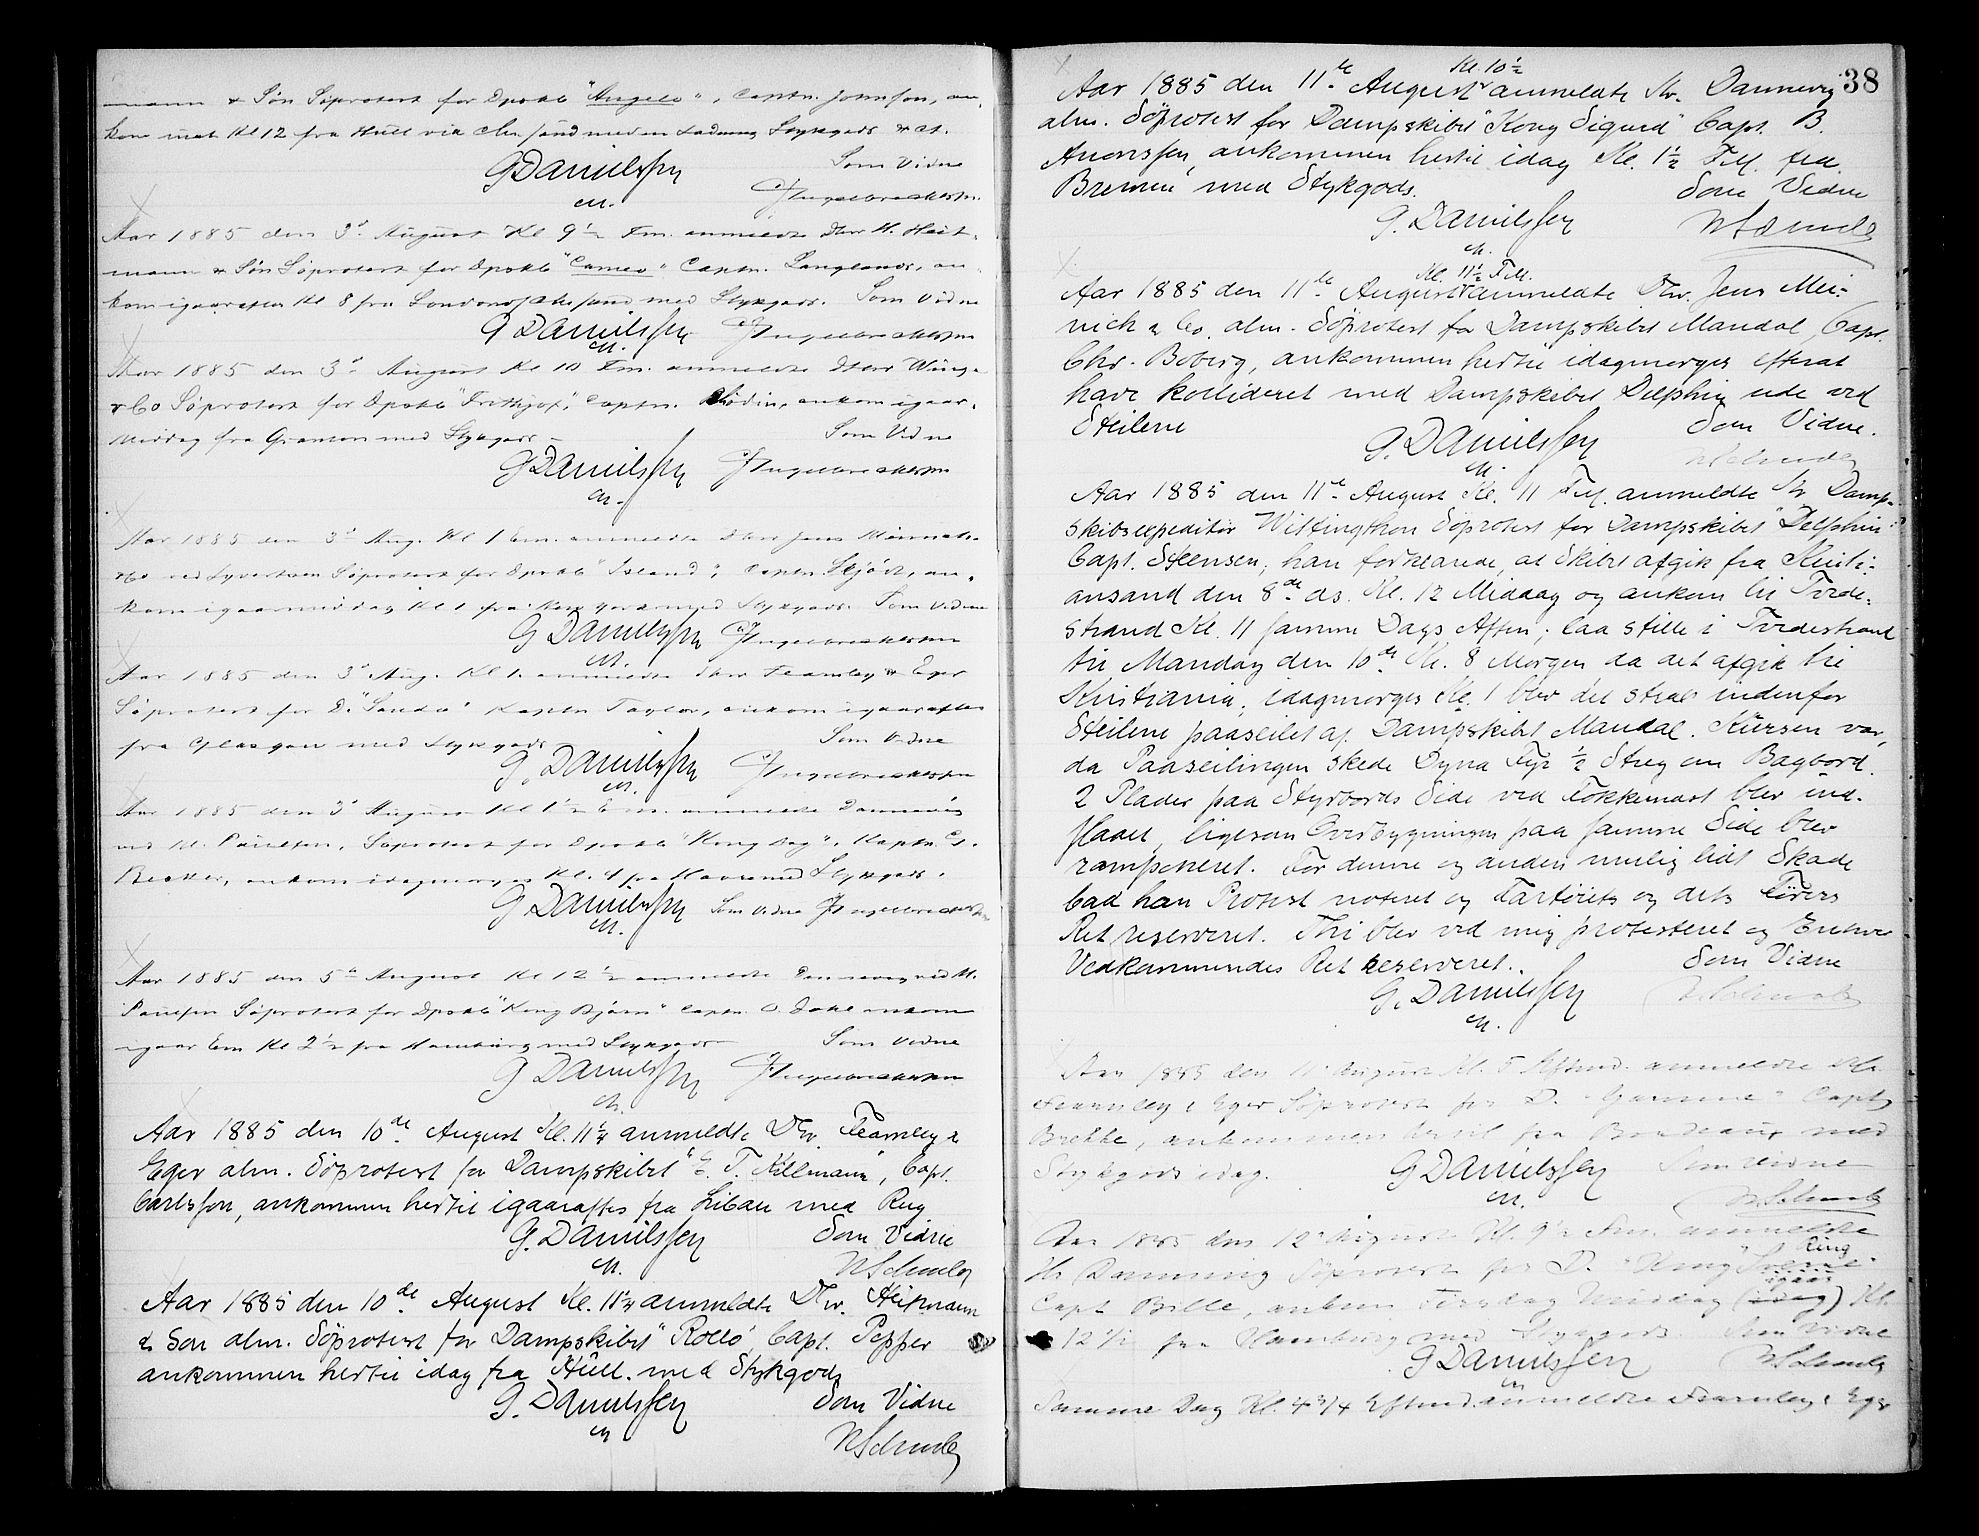 mann & Søn Søprotest for Dpskb "Angelo", Captn. Johnson, an-
kom inat Kl 12 fra Hull via Chr.sand med en Ladning Stykgods
G Danielssen Som Vidne
m. Ingebrechtsen
Aar 1885 den 3d August Kl 9 1/2 Fm. anmeldte Dhrr H. Heit-
mann & Søn Søprotest for Dpskb "Cameo" Captn. Langlands, an-
kom igaaraftes Kl 8 fra London & Chrsand med Stykgods. Som Vidne
G Danielssen Ingebrechtsen
m.
Aar 1885 den 3d August Kl 10 Fm. anmeldte Dhrr Wüng-
& Co Søprotest for Dpskb "Frithjof", Captn. ankom igaar-
Middag fra Granton med Stykgods – Som Vidne
G Danielssen Ingebrechtsen
m.
Aar 1885 den 3d Aug. Kl 1 Em. anmeldte Dhrr Jens Meinich-
& Co ved Syvertsen Søprotest for Dpskb "Island", Captn. Skjödt, an-
kom igaarmiddag Kl 1 fra med Stykgods. Som Vidne
G Danielssen Ingebrechtsen
m.
Aar 1885 den 3d Aug. Kl 1. anmeldte Dhrr Fearnley & Eger
Søprotest for D. "Sanda" Captn Taylor, ankom igaaraftes
fra Glasgow med Stykgods – Som Vidne
G. Danielssen Ingebrechtsen
m.
Aar 1885 den 3d August Kl 1 1/2 Em. anmeldte Dannevig
ved M. Paulsen, Søprotest for Dpskb "Kong Dag", Kaptn. C.
Becker, ankom idagmorges Kl. 4 fra Havre med Stykgods.
G Danielssen Som Vidne Ingebrechtsen
m.
Aar 1885 den 5te August Kl 12 1/2 anmeldte Dannevig ved M.
Paulsen Søprotest for Dpskb "Kong Bjørn" Captn. O. Dahl ankom
igaar Em Kl 2 1/2 fra Hamburg med Stykgods – Som Vidne
G Danielssen Ingebrechtsen
m.
Aar 1885 den 10de August Kl. 11 1/4 anmeldte Dhr. Fearnley &
Eger alm. Søprotest for Dampskibet "C. F. Killmann", Capt.
Carlsson, ankommen hertil igaaraftes fra Libau med Rug
G. Danielssen Som Vidne
m. N Schundz
Aar 1885 den 10de August Kl. 11 1/2 anmeldte Dhr. Heitmann
& Søn alm. Søprotest for Dampskibet "Rollo", Capt. Pepper
ankommen hertil idag fra Hull. med Stykgods
G. Danielssen Som Vidne
m N Schundz
38
Kl. 10 1/2
Aar 1885 den 11te August anmeldte Hr. Dannevig
alm. Søprotest for Dampskibet "Kong Sigurd" Capt. B.
Anonssen, ankommen hertil idag Kl. 1 1/2 F.M. fra
Bremen, med Stykgods. Som Vidne
G. Danielssen N Schundz
m.
Kl. 11 1/2 F.M.
Aar 1885 den 11te August anmeldte Dhr. Jens Mei-
nich & Co. alm. Søprotest for Dampskibet Mandal, Capt.
Chr. Boberg, ankommen hertil idagmorges efterat
have kollideret med Dampskibet Delphin ude ved
Steilene Som Vidne.
G. Danielssen N Schundz
m.
Aar 1885 den 11te August Kl. 11 F.M. anmeldte Hr Damp-
skibsexpeditør Wittingthon Søprotest for Dampskibet "Delphin"
Capt. Steensen; han forklarede, at Skibet afgik fra Kristi-
ansand den 8de ds. Kl. 12 Middag og ankom til Tvede-
strand Kl. 11 samme Dags Aften; laa stille i Tvedestrand
til Mandag den 10de Kl. 8 Morgen da det afgik til
Kristiania; idagmorges Kl. 1 blev det strax indenfor
Steilene paaseilet af Dampskibet Mandal. Kursen var,
da Paaseilingen skede Dyna Fyr 1/2 Streg om Bagbord.
2 Plader paa Styrbords Side ved Fokkemast blev ind-
slaaet, ligesom Overbygningen paa samme Side blev
ramponeret. For denne og anden mulig lidt Skade
bad han Protest noteret og Fartøiets og dets Førers
Ret reserveret. Thi blev ved mig protesteret og Enhver
Vedkommendes Ret reserveret. Som Vidne
G. Danielssen N Schundz
m.
Aar 1885 den 11te August Kl. 5 Eftmd. anmeldte Hr.
Fearnley & Eger Søprotest for D. "Garonne" Capt.
Brekke, ankommen hertil fra Bordeaux med
Stykgods idag. Som Vidne
G Danielssen N. Schundz
m.
Aar 1885 den 12te August Kl. 9 1/2 Fm. anmeldte
Hr Dannevig Søprotest for D. "Kong Sverre" ring
Capt Bille, ankom Tirsdag Middag (idag) igaar Kl.
12 1/2 fra Hamburg med Stykgods Som Vidne
G Danielssen N Schundz
m
Samme Dag Kl. 4 3/4 Eftmd. anmeldte Fearnley & Eger